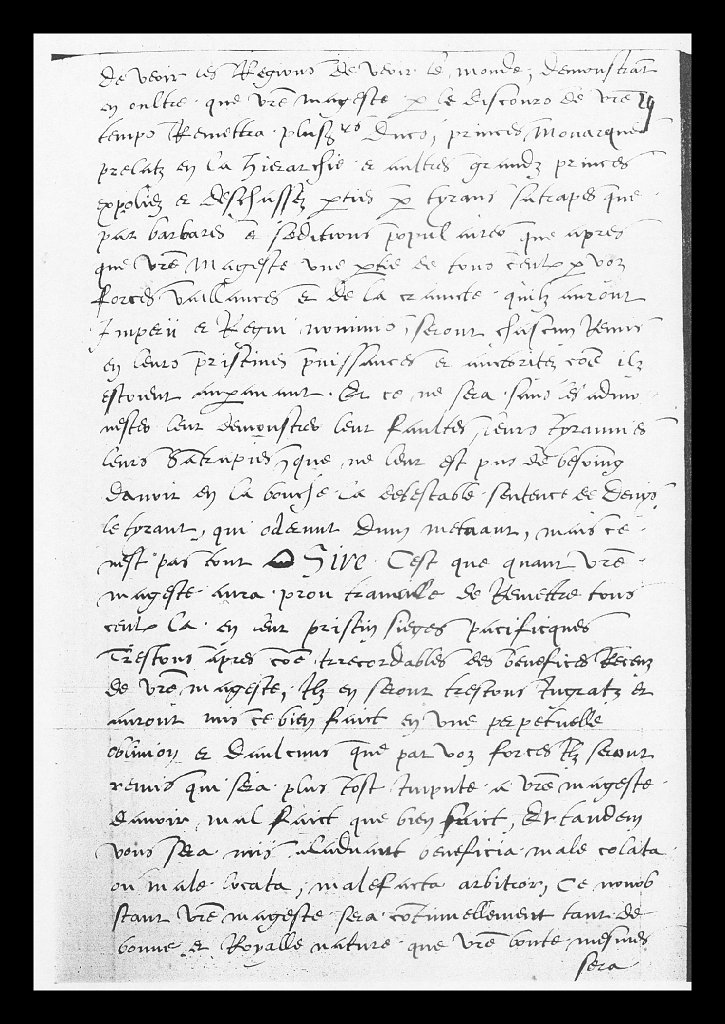 de veoir les Regions de veoir le monde, demonstrant
en oultre que vre mageste p le discours de vre
temps Remettra plusrs Ducs, princes, Monarques
prelatz en la hierarchie et aultres grandz princes
expoliez et deschassez pties p tyrans satrapes que
par barbares et seditions populaires que apres
que vre Mageste une ptie de tous ceulx p voz
forces vaillances et de la craincte quilz auront
Imperii et Regni nominis, seront chascun Remis
en leurs pristines puissances et auctoritez coe ilz
estoient aupauant. Et ce ne sera sans les admo
nestes leur demonstres leur faultes, leurs tyrannies
leurs Satrapies, que ne leur est pas de besoing
dauoir en la bouche la detestable sentence de Denys
le tyrant, qui oderunt dum metuant, mais ce
nest pas tout O Sire. Cest que quant vre
mageste aura prou trauaille de Remettre tous
ceulx la en leur pristin sieges pacificques
Trestous apres coe irrecordables des benefices Recenz
de vre mageste, Ilz en seront trestous Ingratz et
auront mis ce bien faict en une perpetuelle
obliuion et daulcuns que par voz forces Ilz seront
remis qui sera plus tost Impute a vre mageste
dauoir mal faict que bien faict, Et tandem
vous sera mis aladuant beneficia male colata
ou male locata, malefacta arbitror, Ce nonob
stant vre mageste sera continuellement tant de
bonne et Royalle nature que vre bonte mesmes
sera